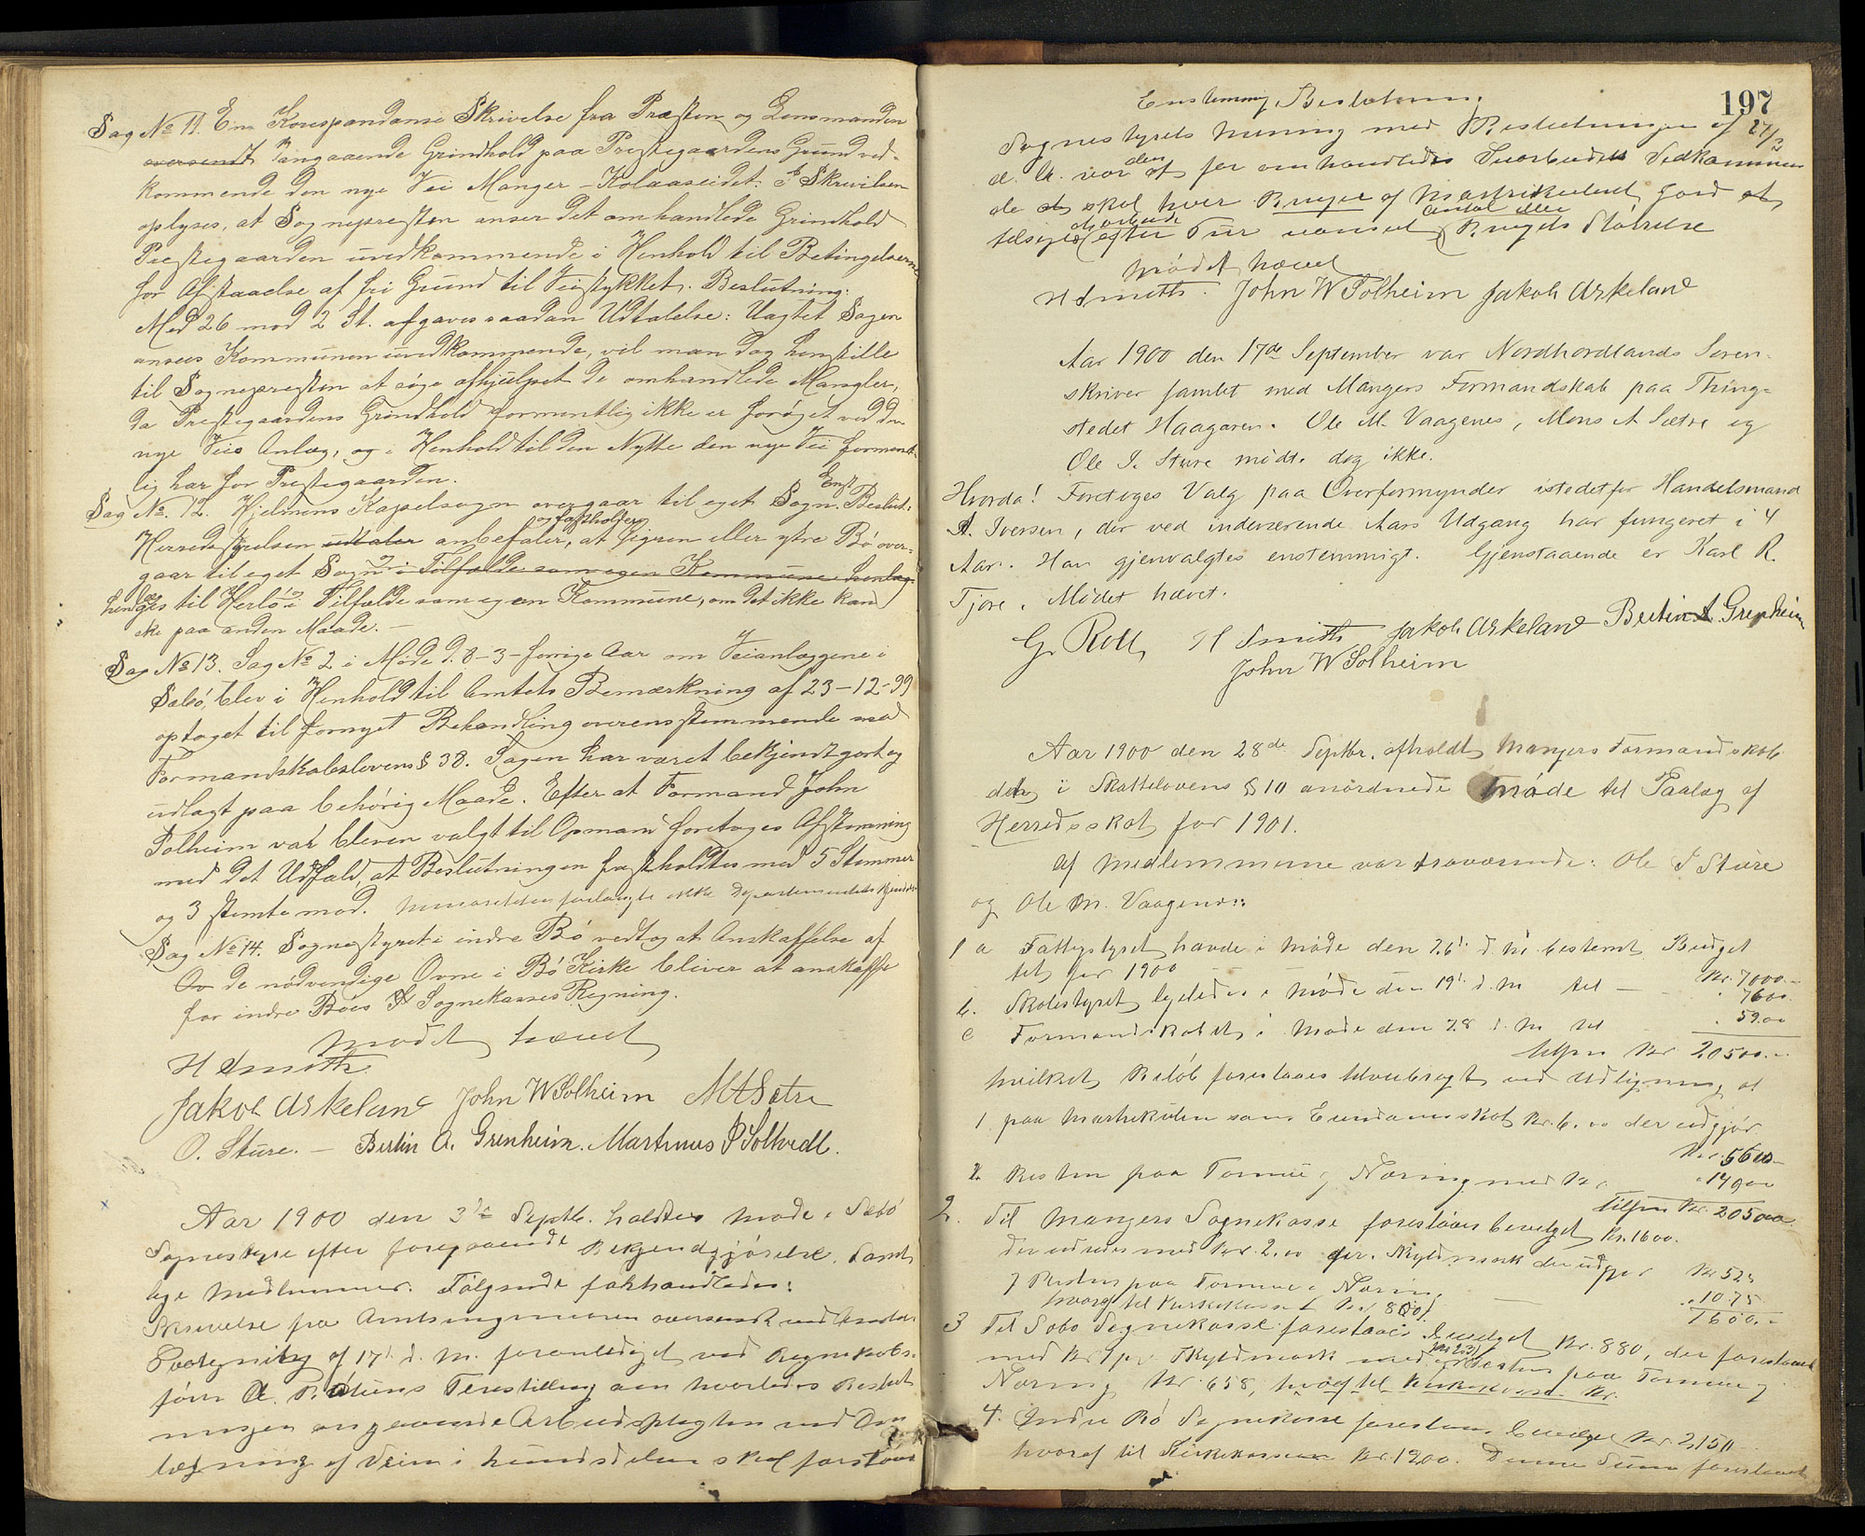 Sag No 11. En Korrespondanse Skrivelse fra Præsten og Lensmanden
oversendt angaaende Grindhold paa Prestegaardens Grund ved-
kommende den nye Vei Manger - Kolaaseidet. I Skrivelsen
oplyses, at Sognepresten anser det omhandlede Grindhold
Prestegaarden uvedkommende i Henhold til Betingelserne
for Afstaaelse af fri Grund til Veistykket. Beslutning:
Med 26 mod 2 St. afgaves saadan Udtalelse: Uagtet Sagen
ansees Kommunen uvedkommende, vil man dog henstille
til Sognepresten at søge afhjulpet de omhandlede Mangler,
da Prestegaardens Grindhold formentlig ikke er forøget ved den
nye Veis Anlæg, og i Henhold til den Nytte den nye Vei forment-
lig har for Prestegaarden.
Sag No. 12. Hjelmens Kapelsogn overgaar til eget Sogn. Enst. Beslut:
Herredsstyrelsen udtaler anbefaler, og fastholder at Ligren eller ytre Bø over-
gaar til eget Sogn i Tilfælde som egen Kommune henlæg-
henlægges til Herlø i Tilfælde som egen Kommune, om det ikke kan
ske paa anden Maade. -
Sag No 13. Sag No 2 i Møde d. 8-3- forrige Aar om Veianlæggene i
Sæbø, blev i Henhold til Amtets Bemærkning af 23-12-99
optaget til fornyet Behandling overensstemmende med
Formandskabslovens § 38. Sagen har været bekjendtgjort og
udlagt paa behørig Maade. Efter at Formand John
Solheim var bleven valgt til Opmand foretoges Afstemning
med det Udfald, at Beslutningen fastholdtes med 5 Stemmer
og 3 stemte mod. Minoriteten forlangte ikke Departementets Kjendelse
Sag No 14. Sognestyret i indre Bø vedtog at Anskaffelse af
Ov de nødvendige Ovne i Bø Kirke bliver at anskaffe
for indre Bøes Sognekasses Regning.
Mødet hævet
H Smith
Jakob Askeland John W Solheim M A Sætre
O. Sture. - Bertin A. Grenheim. Martinus P Soltvedt.
Aar 1900 den 3die Septb. holdtes Møde i Sæbø
Sognestyre efter foregaaende Bekjendtgjørelse. Samt
lige Medlemmer. Følgende forhandledes:
Skrivelse fra Amtsingeniøren oversendt ved Amtets
Paategning af 17de d. M. foranlediget ved Regnskabs-
fører A. P. Stures Forestilling om hvorledes Beslut
ningen angaaende Arbeidspligten ved Om
lægning af Veien i Hundsdalen skal forstaaes
197
Enstemmig Beslutning
Sognestyrets Mening med Beslutningen af 27/3
d. A. var den at for omhandledes Vedkommen
de skal hver Bruger af Matrikuleret Jord at
tilsiges efter Tur uanset antal eller Brugets Størrelse
Mødet hævet
H Smith. John W Solheim Jakob Askeland
Aar 1900 den 17de September var Nordhordlands Soren-
skriver samlet med Mangers Formandskab paa Thing-
stedet Haagaren. Ole M. Vaagenes, Mons A Sætre og
Ole I. Sture mødte dog ikke.
Hvorda! Foretoges Valg paa Overformynder istedetfor Handelsmand
A. Iversen, der ved indeværende Aars Udgang har fungeret i 4
Aar. Han gjenvalgtes enstemmigt. Gjenstaaende er Karl R.
Tjore. Mødet hævet.
G. Roll H Smith Jakob Askeland Bertin A. Grenheim
John W Solheim
Aar 1900 den 28de Septbr. afholdt Mangers Formandskab
det i Skattelovens § 10 anordnede Møde til Paalæg af
Herredsskat for 1901.
Af Medlemmerne var fraværende: Ole I Sture
og Ole M. Vaagenes:
1 a Fattigstyret havde i Møde den 26de d. M. bestemt Budget
til for 1900 Kr. 7000.-
b. Skolestyret ligeledes i Møde den 19de d. M til - 7600.
c Formandskabet i Møde den 28 d. M til 5900
tilsm Kr 20500.-
hvilket Beløb foreslaaes tilveiebragt ved Udligning at
1. paa Matrikulen som Eiendomsskat Kr. 6.00 der udgjør
Kr. 5600-
2. Resten paa Formue og Næring med Kr. 14900
tilsm Kr. 20500
2. Til Mangers Sognekasse foreslaaes bevilget Kr. 1600.
der udredes med Kr. 2.00 pr. Skyldmark der udgjør Kr 525
og Resten paa Formue og Næring - 1075
hvoraf til Kirkekassen Kr. 800 1600.-
3 Til Sæbø Sognekasse foreslaaes bevilget Kr. 880, der foreslaaes
med Kr 1 pr Skyldmark med Resten paa Formue og
Næring Kr. 658, hvoraf til Kirkekassen Kr.
4. Indre Bø Sognekasse foreslaaes bevilget Kr. 2150
hvoraf til Kirkekassen Kr. 1200. Denne Sum foreslaaes